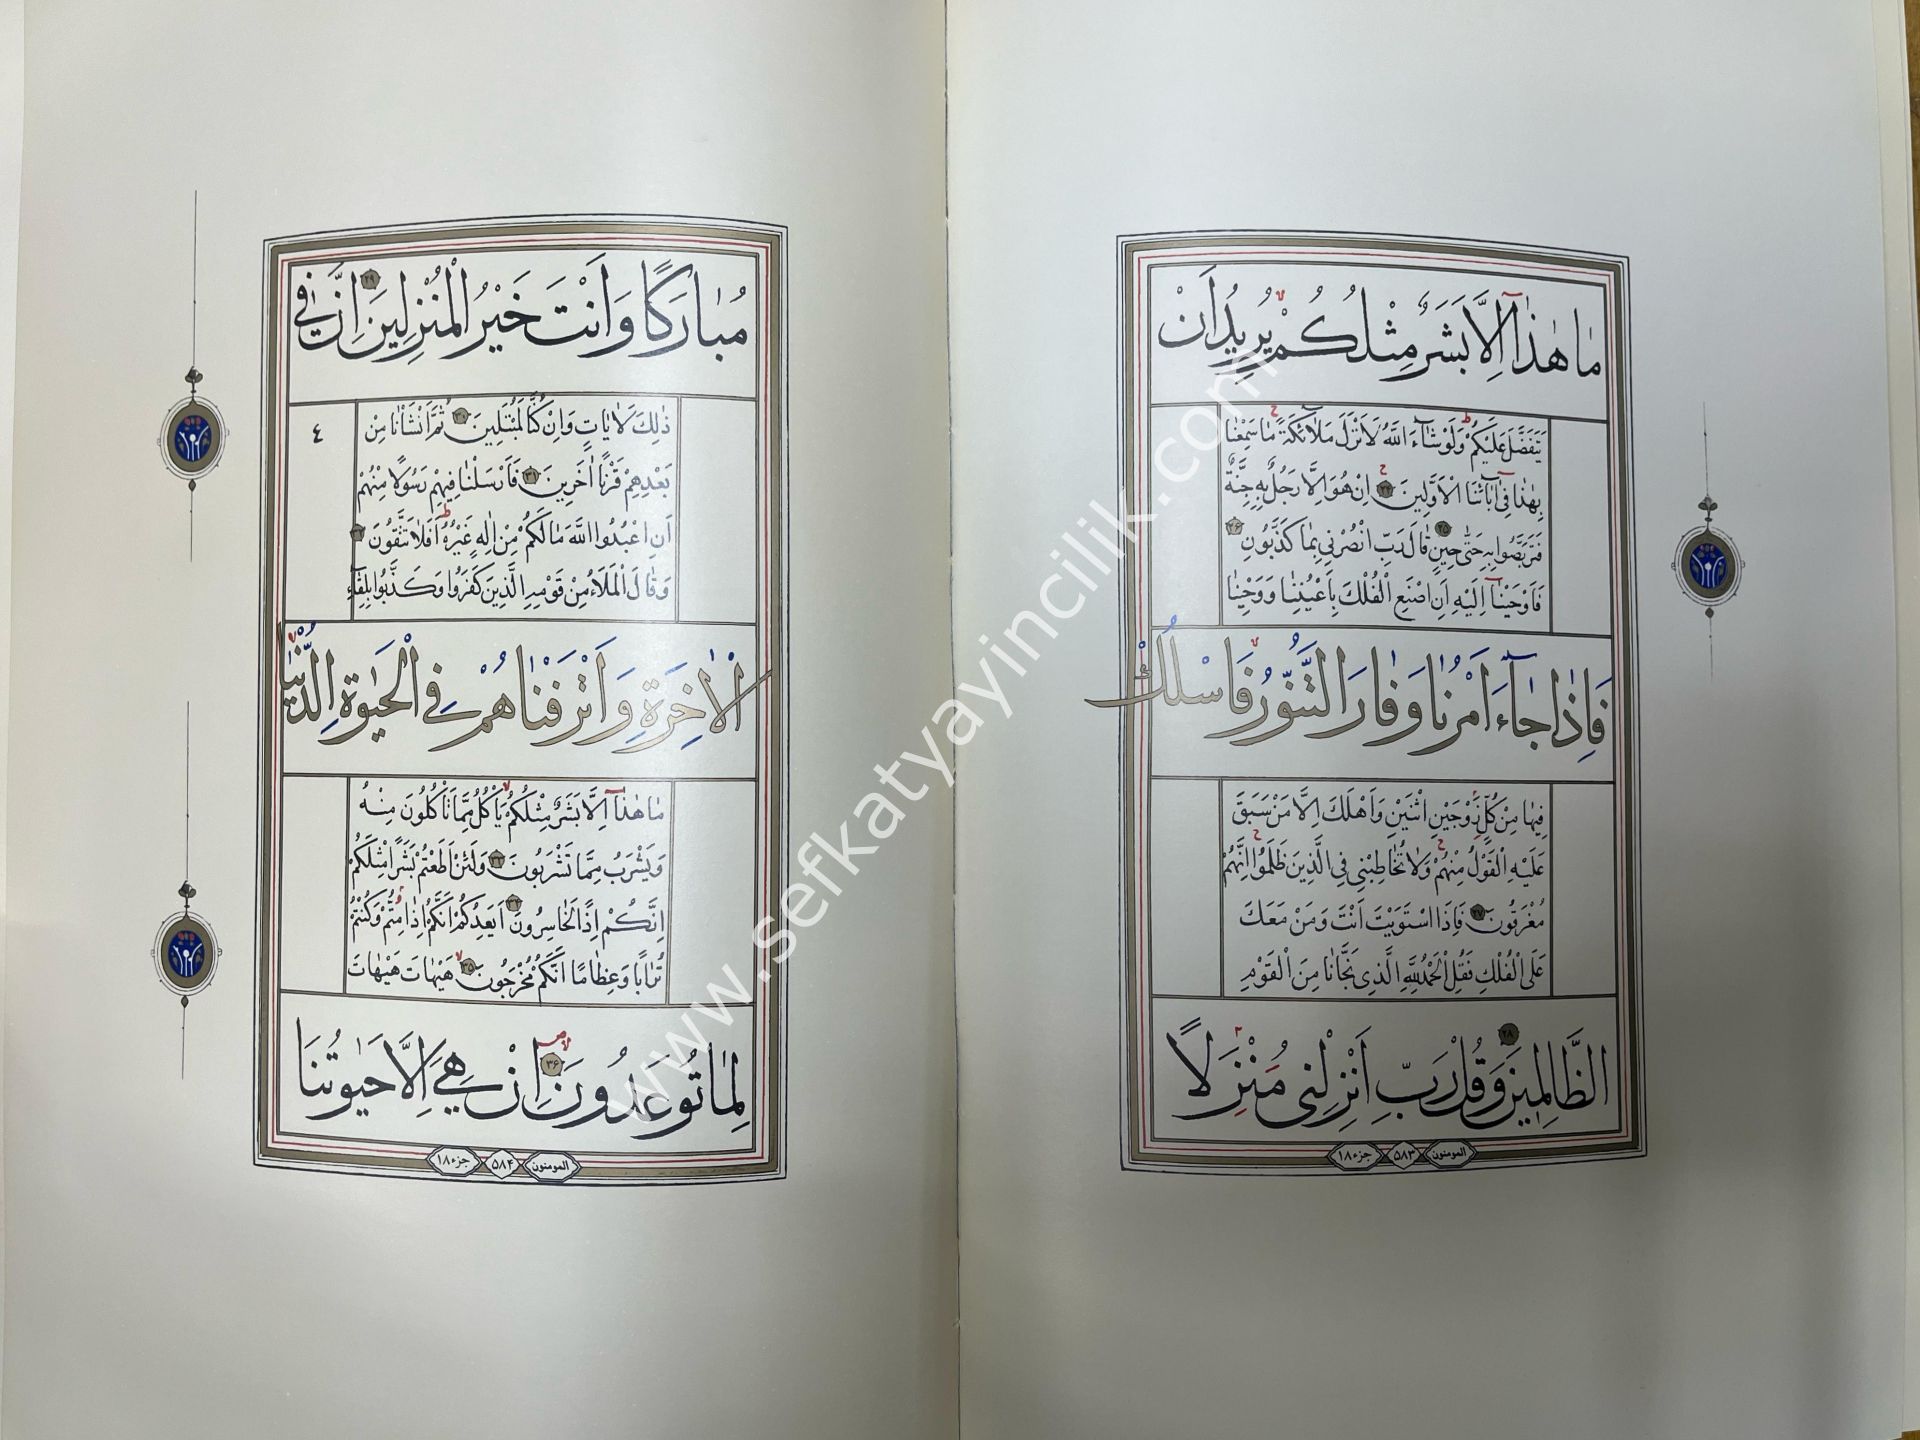 مَا هٰذَٓا اِلَّا بَشَرٌ مِثْلُكُمْ يُرِيدُ اَنْ
يَتَفَضَّلَ عَلَيْكُمْ وَلَوْ شَٓاءَ اللّٰهُ لَاَنْزَلَ مَلٰٓائِكَةً مَا سَمِعْنَا
بِهٰذَا فِٓى اٰبَٓائِنَا الْاَوَّلِينَ ۲۴ اِنْ هُوَ اِلَّا رَجُلٌ بِهِ جِنَّةٌ
فَتَرَبَّصُوا بِهِ حَتّٰى حِينٍ ۲۵ قَالَ رَبِّ انْصُرْنِى بِمَا كَذَّبُونِ ۲۶
فَاَوْحَيْنَٓا اِلَيْهِ اَنِ اصْنَعِ الْفُلْكَ بِاَعْيُنِنَا وَوَحْيِنَا
فَاِذَا جَٓاءَ اَمْرُنَا وَفَارَ التَّنُّورُ فَاسْلُكْ
فِيهَا مِنْ كُلٍّ زَوْجَيْنِ اثْنَيْنِ وَاَهْلَكَ اِلَّا مَنْ سَبَقَ
عَلَيْهِ الْقَوْلُ مِنْهُمْ وَلَا تُخَاطِبْنِى فِى الَّذِينَ ظَلَمُوا اِنَّهُمْ
مُغْرَقُونَ ۲۷ فَاِذَا اسْتَوَيْتَ اَنْتَ وَمَنْ مَعَكَ
عَلَى الْفُلْكِ فَقُلِ الْحَمْدُ لِلّٰهِ الَّذِى نَجّٰانَا مِنَ الْقَوْمِ
الظَّالِمِينَ ۲۸ وَقُلْ رَبِّ اَنْزِلْنِى مُنْزَلًا
المومنون ۵۸۳ جزء ۱۸
مُبَارَكًا وَاَنْتَ خَيْرُ الْمُنْزِلِينَ ۲۹ اِنَّ فِى
ذٰلِكَ لَاٰيَاتٍ وَاِنْ كُنَّا لَمُبْتَلِينَ ۳۰ ثُمَّ اَنْشَاْنَا مِنْ ٤
بَعْدِهِمْ قَرْنًا اٰخَرِينَ ۳۱ فَاَرْسَلْنَا فِيهِمْ رَسُولًا مِنْهُمْ
اَنِ اعْبُدُوا اللّٰهَ مَا لَكُمْ مِنْ اِلٰهٍ غَيْرُهُ اَفَلَا تَتَّقُونَ ۳۲
وَقَالَ الْمَلَاُ مِنْ قَوْمِهِ الَّذِينَ كَفَرُوا وَكَذَّبُوا بِلِقَٓاءِ
الْاٰخِرَةِ وَاَتْرَفْنَاهُمْ فِى الْحَيٰوةِ الدُّنْيَا
مَا هٰذَٓا اِلَّا بَشَرٌ مِثْلُكُمْ يَاْكُلُ مِمَّا تَاْكُلُونَ مِنْهُ
وَيَشْرَبُ مِمَّا تَشْرَبُونَ ۳۳ وَلَئِنْ اَطَعْتُمْ بَشَرًا مِثْلَكُمْ
اِنَّكُمْ اِذًا لَخَاسِرُونَ ۳۴ اَيَعِدُكُمْ اَنَّكُمْ اِذَا مِتُّمْ وَكُنْتُمْ
تُرَابًا وَعِظَامًا اَنَّكُمْ مُخْرَجُونَ ۳۵ هَيْهَاتَ هَيْهَاتَ
لِمَا تُوعَدُونَ ۳۶ اِنْ هِىَ اِلَّا حَيَوتُنَا
المومنون ۵۸۴ جزء ۱۸
www.sefkatyayincilik.com